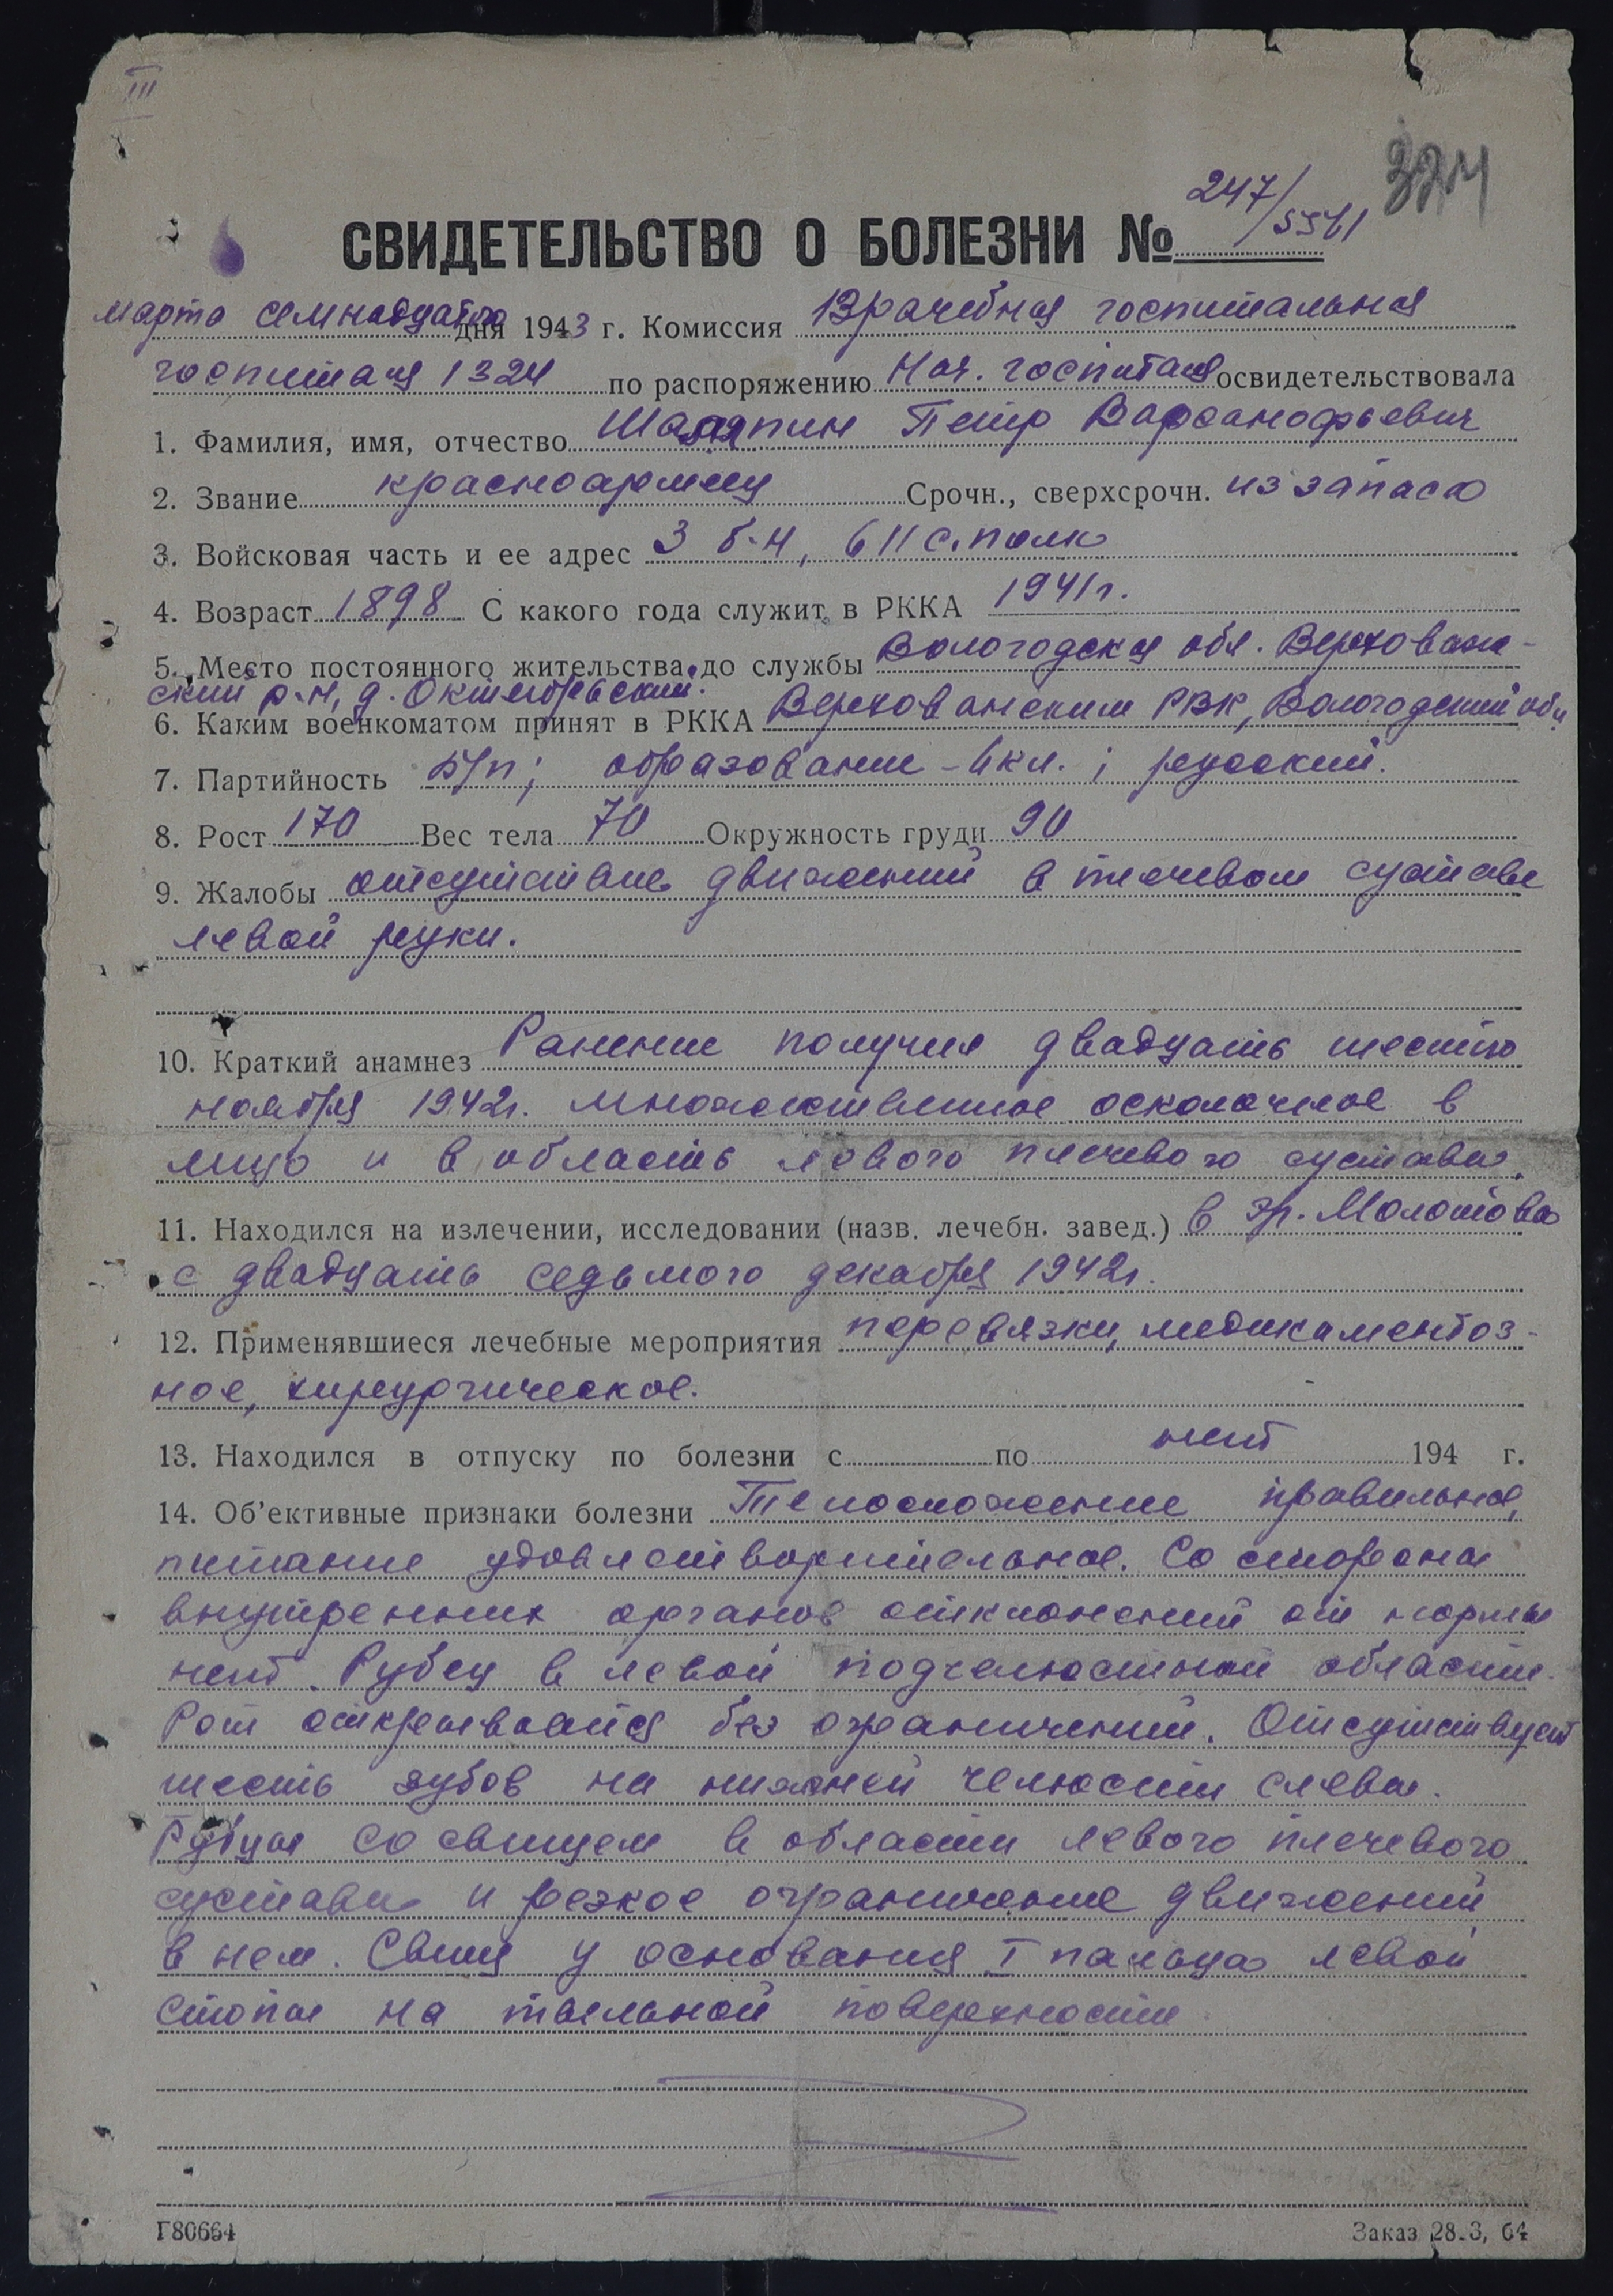 III
324
247/5561
СВИДЕТЕЛЬСТВО О БОЛЕЗНИ №
марта семнадцатого дня 1943 г. Комиссия Врачебная госпитальная
госпиталя 1324 по распоряжению Нач. госпиталя освидетельствовала
1. Фамилия, имя, отчество Шаляпин Петр Варсанофьевич
2. Звание красноармеец Срочн., сверхсрочн. из запаса
3. Войсковая часть и ее адрес 3 б-н, 611 с. полк
4. Возраст 1898 С какого года служит в РККА 1941 г.
5. Место постоянного жительства до службы Вологодская обл. Верховаж-
ский р-н, д. Октябрьский.
6. Каким военкоматом принят в РККА Верховажским РВК, Вологодский обл.
7. Партийность б/п; образование - 4 кл.; русский.
8. Рост 170 Вес тела 70 Окружность груди 90
9. Жалобы отсутствие движений в плечевом суставе
левой руки.
10. Краткий анамнез Ранение получил двадцать шестого
ноября 1942 г. множественное осколочное в
лицо и в область левого плечевого сустава.
11. Находился на излечении, исследовании (назв. лечебн. завед.) в эг. Молотова
с двадцать седьмого декабря 1942 г.
12. Применявшиеся лечебные мероприятия перевязки, медикаментоз-
ное, хирургическое.
13. Находился в отпуску по болезни с по нет 194 г.
14. Об'ективные признаки болезни Телосложение правильное,
питание удовлетворительное. Со стороны
внутренних органов отклонений от нормы
нет. Рубец в левой подчелюстной области.
Рот открывается без ограничений. Отсутствует
шесть зубов на нижней челюсти слева.
Рубцы со свищем в области левого плечевого
сустава и резкое ограничение движений
в нем. Свищ у основания I пальца левой
стопы на тыльной поверхности
Г80664
Заказ 28.3, 64